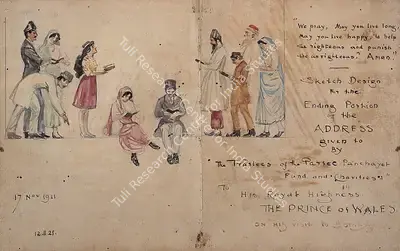 "We pray, May you live long,
may you live happy, to help
the righteous and punish
the unrighteous." Amen."
Sketch Design
for the
Ending Portion
of the
ADDRESS
given to
by
"The Trustees of the Parsee Panchayet
Fund and Charities"
To
His Royal Highness
THE PRINCE OF WALES
on His visit to
17 Nov 1921
12.8.21.
Tuli Research Centre for India Studies